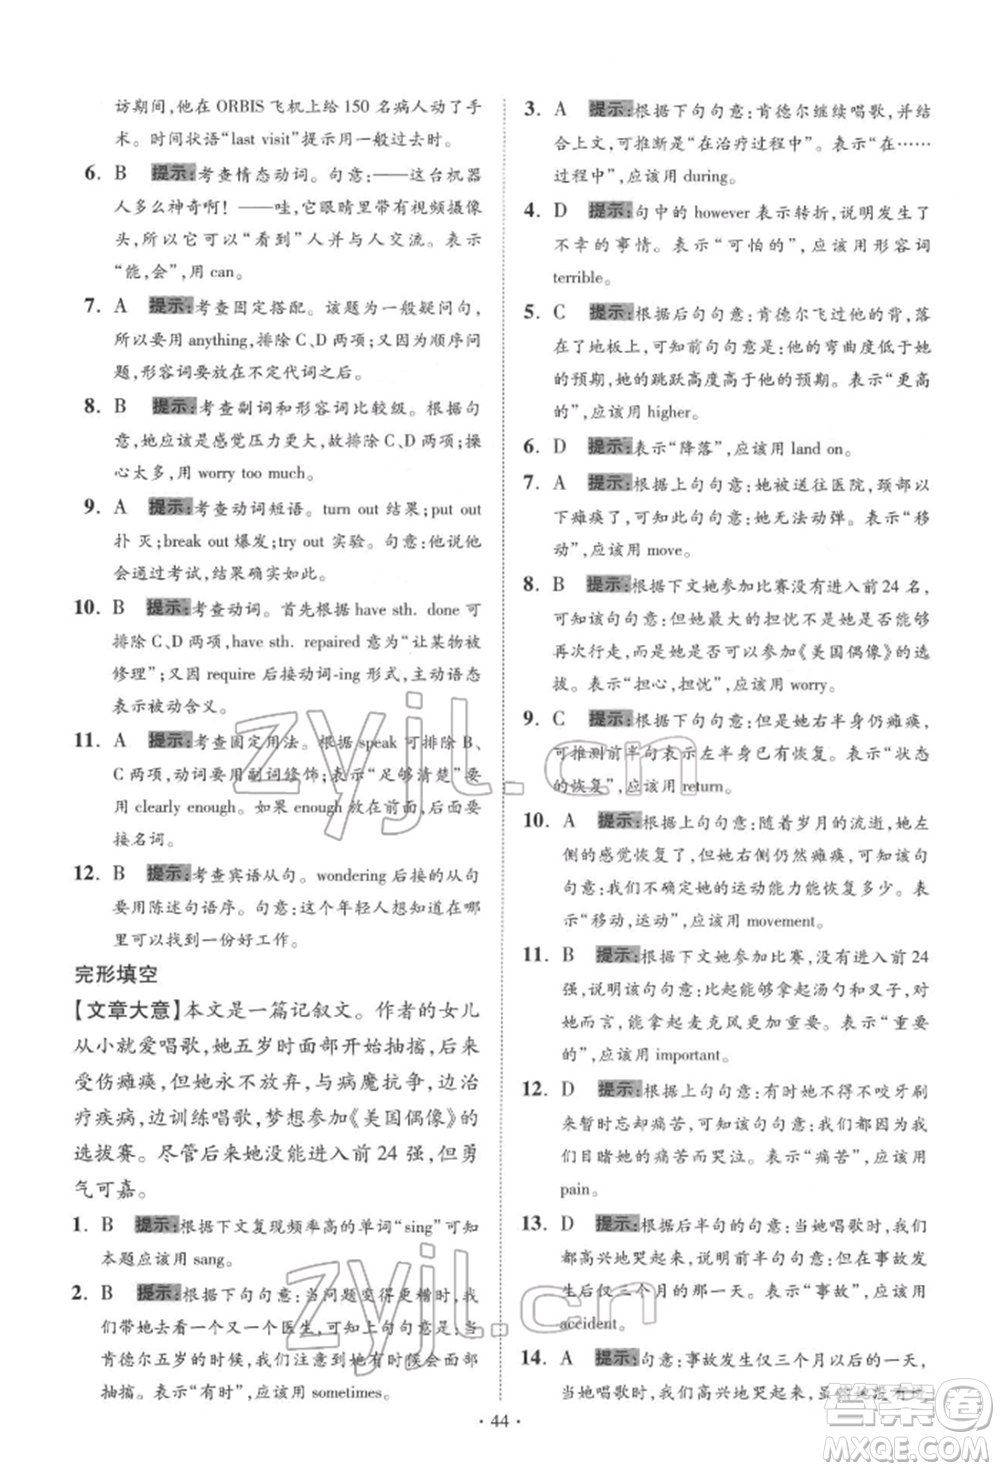 访期间,他在 ORBIS 飞机上给 150 名病人动了手
术。时间状语“last visit”提示用一般过去时。
6. B 提示:考查情态动词。句意:——这台机器
人多么神奇啊!——哇,它眼睛里带有视频摄像
头,它可以“看到”人并与人交流。表示
“能,会”,用 can。
7. A 提示:考查固定搭配。该题为一般疑问句,
要用 anything,排除 C、D 两项;又因为顺序问
题,形容词要放在不定代词之后。
8. B 提示:考查副词和形容词比较级。根据句
意,她应该是感觉压力更大,故排除 C、D 两项;操
心太多,用 worry too much。
9. A 提示:考查动词短语。turn out 结果;put out
扑 灭;break out 爆发;try out 实验。句意:他
会通过考试,结果确实如此。
10. B 提示:考查动词。首先根据 have sth. done 可
排除 C、D 两项,have sth. repaired 意为“让某物被
修理”;又因 require 后接动词-ing 形式,主动语态
表示被动含义。
11. A 提示:考查固定用法。根据 speak 可排除 B、
C 两项,动词要用副词修饰;表示“足够清楚”要
用 clearly enough。如果 enough 放在前面,后面要
接名词。
12. B 提示:考查宾语从句。wondering 后接的从句
要用陈述句语序。句意:这个年轻人想知道在哪
里可以找到一份好工作。
完形填空
【文章大意】本文是一篇记叙文。作者的女儿
从小就爱唱歌,她五岁时面部开始抽搐,后来
受伤瘫痪,但她永不放弃,与病魔抗争,边治
疗疾病,边训练唱歌,梦想参加《美国偶像》的
选拔赛。尽管后来她没能进入前 24 强,但勇
气可嘉。
1. B 提示:根据下文复现频率高的单词“sing”可知
本题应该用 sang。
2. B 提示:根据下句句意:当问题变得更糟时,我
们带她去看了一个又一个医生,可知此句句意:当
肯德尔五岁的时候,我们注意到她有时候会面部
抽搐。表示“有时”,应该用 sometimes。
3. A 提示:根据下句句意:肯德尔继续唱歌,并结
合上文,可知此句表示“在治疗过程中”,表示“在……
过程中”,应该用 during。
4. D 提示:句中的 however 表示转折,说明发生了
不幸的事情。表示“可怕的”,应该用形容词
terrible。
5. C 提示:根据后句句意:肯德尔飞过他的背,落
在了地板上,可知前句句意是:他的弯曲度低于她
的预期,她的跳跃高度高于他的预期。表示“更高
的”,应该用 higher。
6. D 提示:表示“降落”,应该用 land on。
7. A 提示:根据上句句意:她被送往医院,颈部以
下瘫痪了,可知此句句意:她无法动弹。表示“移
动”,应该用 move。
8. B 提示:根据下文她参加比赛没有进入前 24 名,
可知此句句意:但是,她最大的担忧不是她能够
再次行走,而是她是否可以参加《美国偶像》的选
拔赛。表示“担心,担忧”,应该用 worry。
9. C 提示:根据下句句意:但是她右半身仍瘫痪,
可推测前半句表示左半身已有恢复。表示“状态
的恢复”,应该用 return。
10. A 提示:根据上句句意:随着岁月的流逝,她左
侧的感觉恢复了,但她的右侧仍然瘫痪,可知该句
句意:我们不确定她的运动能力能恢复多少。表
示“移动,运动”,应该用 movement。
11. B 提示:根据下文她参加比赛,没有进入前 24
强,可知此句句意:比起能拿起汤勺和叉子,对
她而言,能拿起麦克风更加重要。表示“重要
的”,应该用 important。
12. D 提示:根据上句句意:有时她不得不咬牙刷
来暂时忘却痛苦,可知该句句意:我们大多数人
目睹她的痛苦而哭泣。表示“痛苦”,应该用
pain。
13. D 提示:根据后半句的句意:当她唱歌时,我们
都高兴地哭起来,说明前半句句意:在事故发生
后仅三个月的一天。表示“事故”,应该用
accident。
14. A 提示:句意:事故发生仅三个月以后的一天,
当她唱歌时,我们都高兴地哭起来,虽然她没有
· 44 ·
zyjl.cn
zyjl.cn
答案圈
MXQE.COM